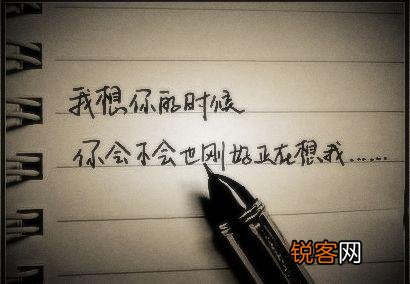 我想你的时候
你会不会也刚好正在想我……
锐客网